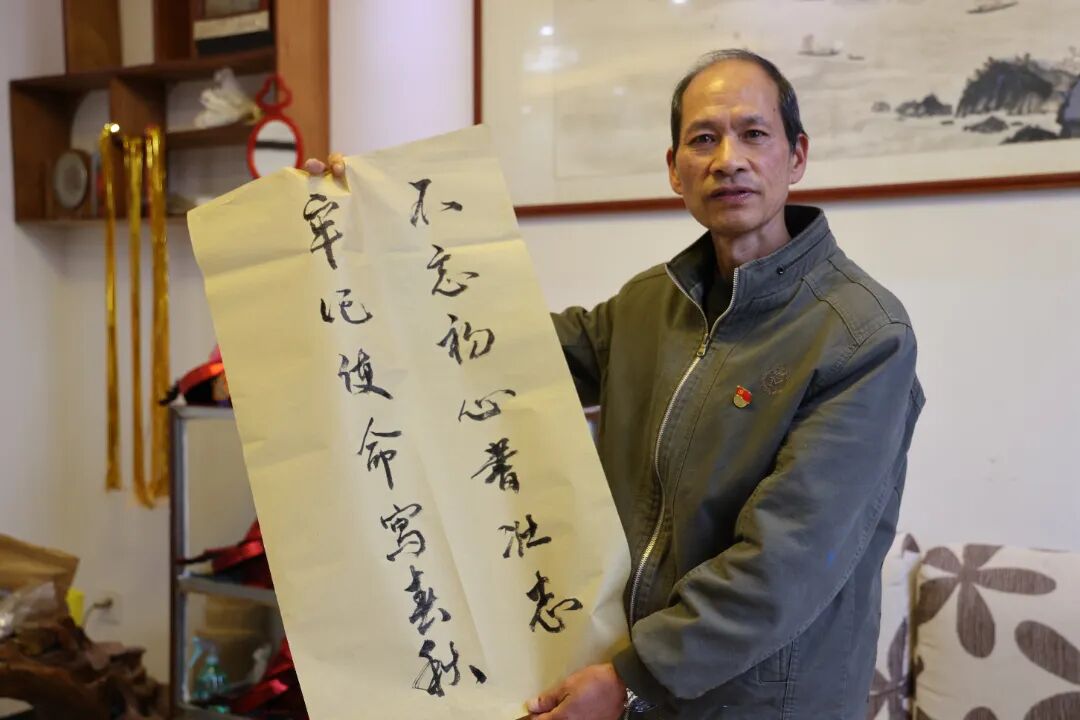 不忘初心著壮志
牢记使命写春秋